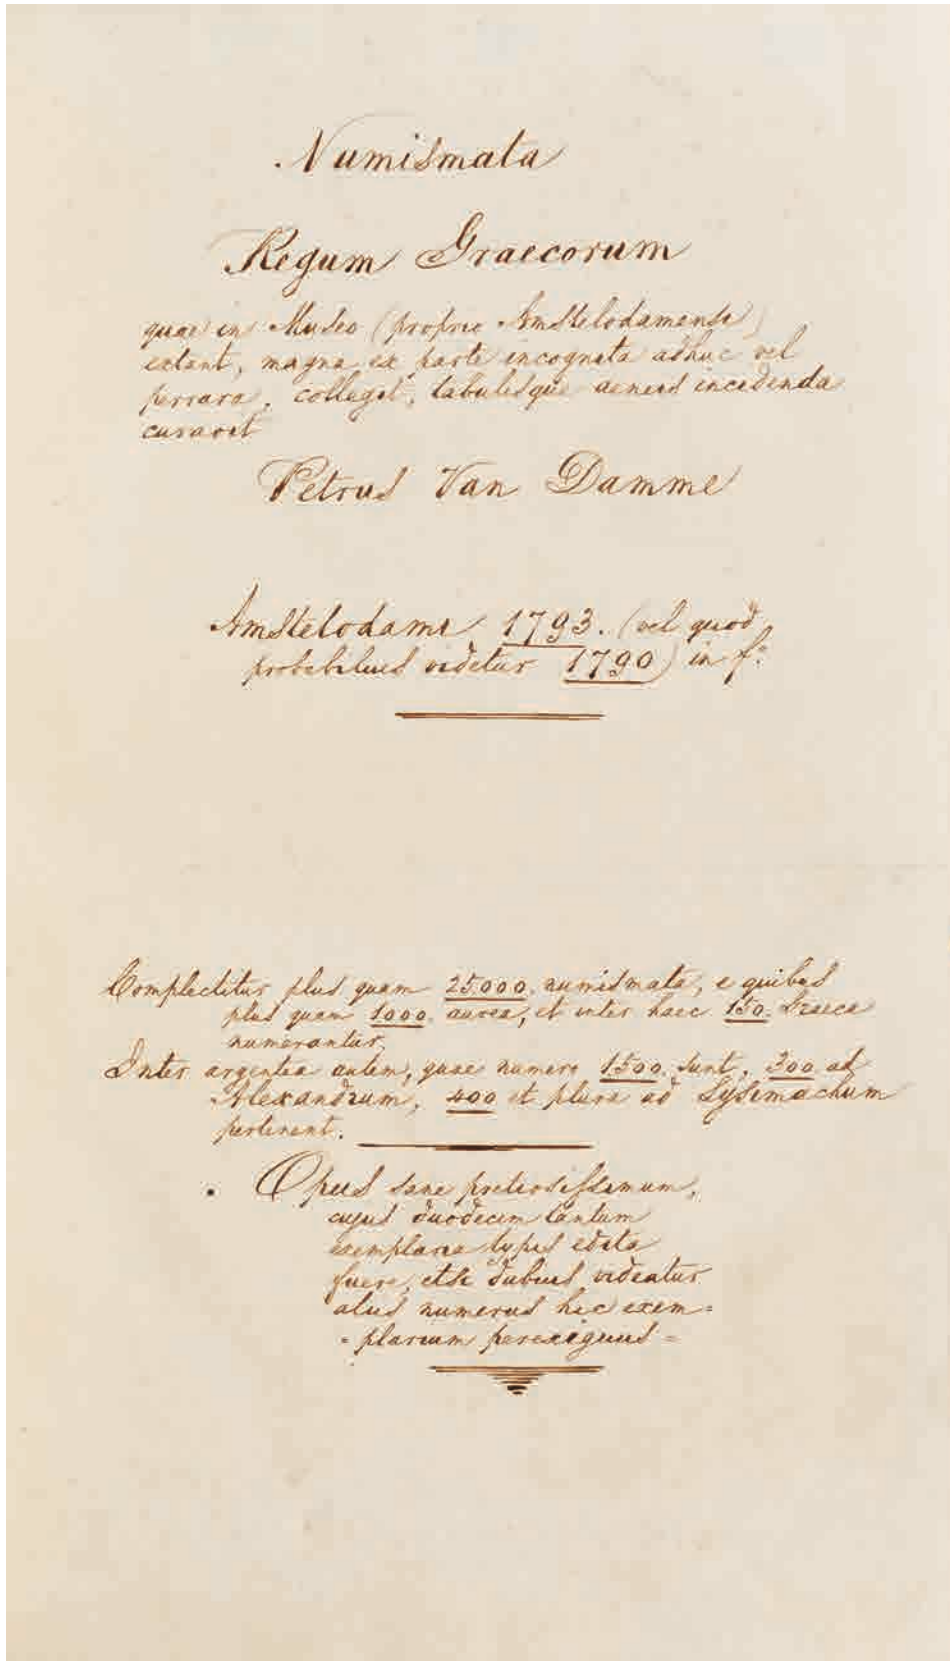 Numismata
Regum Graecorum
quae in Museo (proprie Amstelodamense)
extant, magna ex parte incognita adhuc vel
perrara, collegit, tabulisque aeneis incidenda
curavit
Petrus Van Damme
Amstelodami 1793. (vel quod
probabilius videtur 1790) in fº.
Complectitur plus quam 25.000. numismata, e quibus
plus quam 1000. aurea, et inter haec 150. Graeca
numerantur.
Inter argentea autem, quae numero 1500. sunt, 300 ad
Alexandrum, 400 et plura ad Lysimachum
pertinent.
Opus sane pretiosissimum,
cujus duodecim tantum
exemplaria typis edita
fuere, etsi dubius videatur
alius numerus hic exem=
=plarium perexiguus=